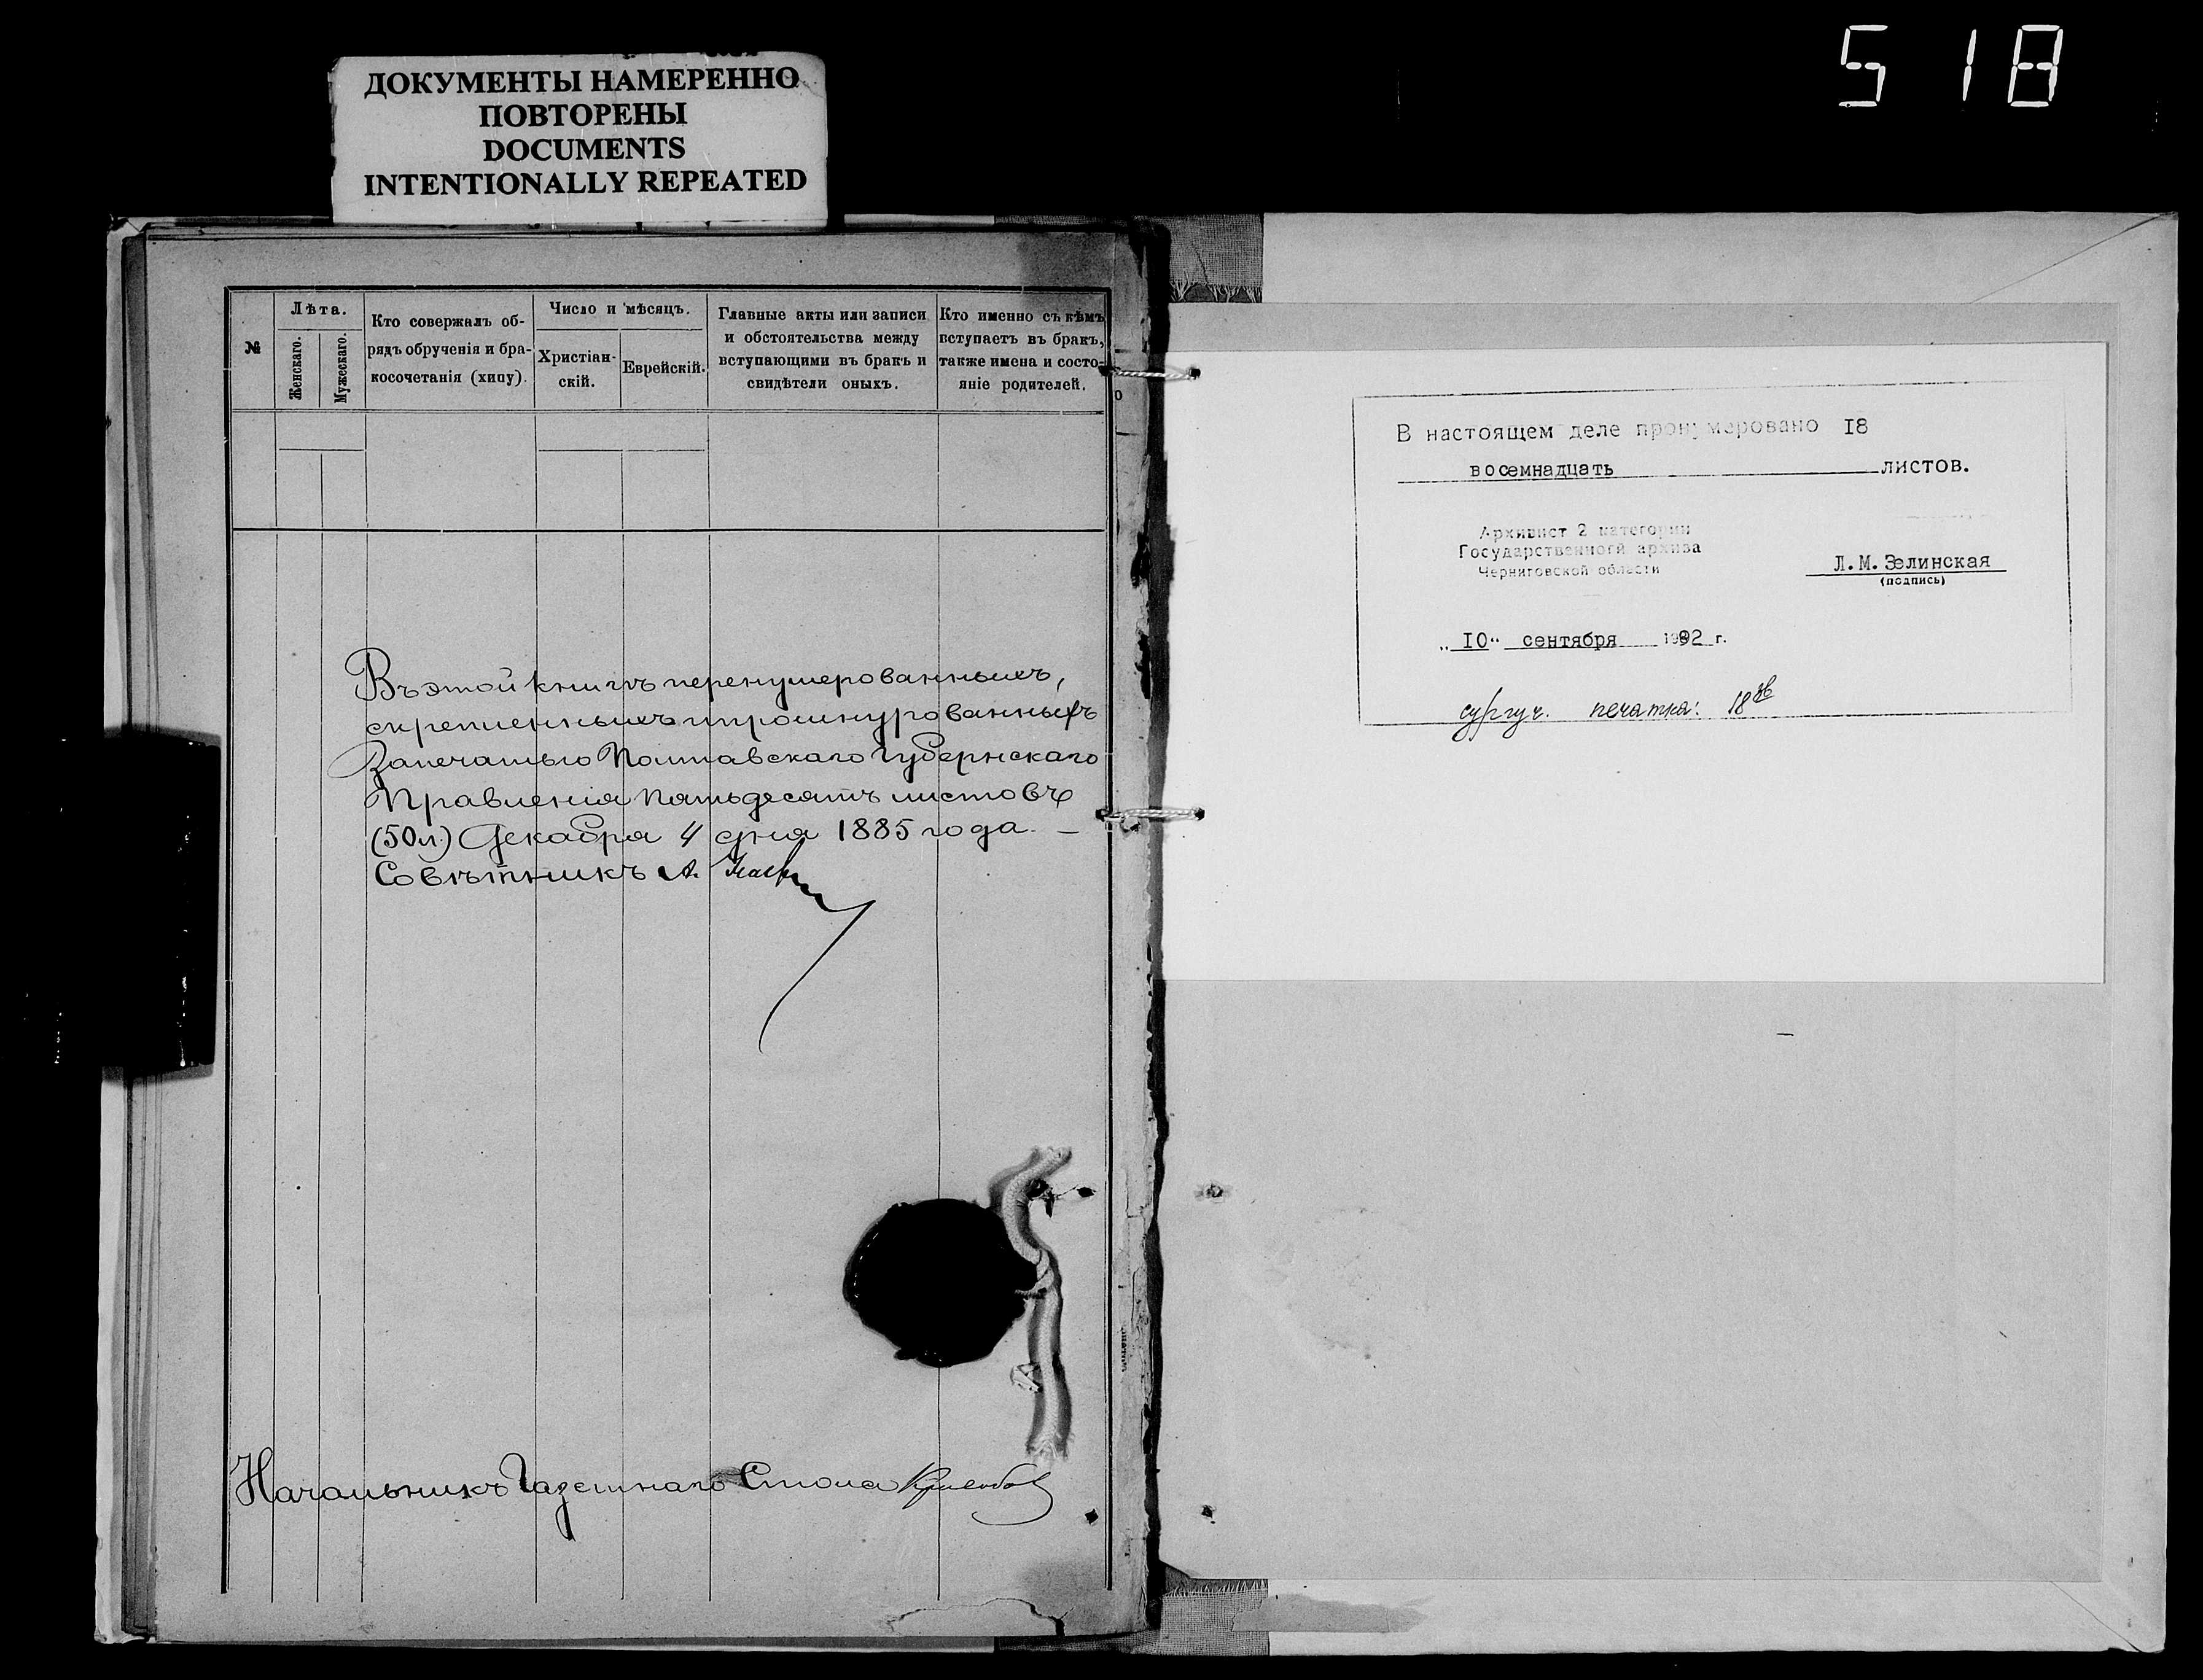 518
ДОКУМЕНТЫ НАМЕРЕННО
ПОВТОРЕНЫ
DOCUMENTS
INTENTIONALLY REPEATED
№
Лѣта.
Женскаго.
Мужескаго.
Кто совержалъ об-
рядъ обрученія и бра-
косочетанія (хипу).
Число и мѣсяцъ.
Христіан-
скій.
Еврейскій.
Главные акты или записи
и обстоятельства между
вступающими въ бракъ и
свидѣтели оныхъ.
Кто именно съ кѣмъ
вступаетъ въ бракъ,
также имена и состо-
яніе родителей.
Въ этой книгѣ перенумерованныхъ,
скрепленныхъ и прошнурованныхъ
За печатью Полтавскаго Губернскаго
Правленія пятьдесятъ листовъ
(50 л.) Декабря 4 дня 1885 года. —
Совѣтникъ А.
Начальникъ Газетнаго Стола
В настоящем деле пронумеровано 18
восемнадцать листов.
Архивист 2 категории
Государственного архива
Черниговской области
Л.М.Зелинская
(подпись)
„10" сентября 1992 г.
сургуч. печатка: 18